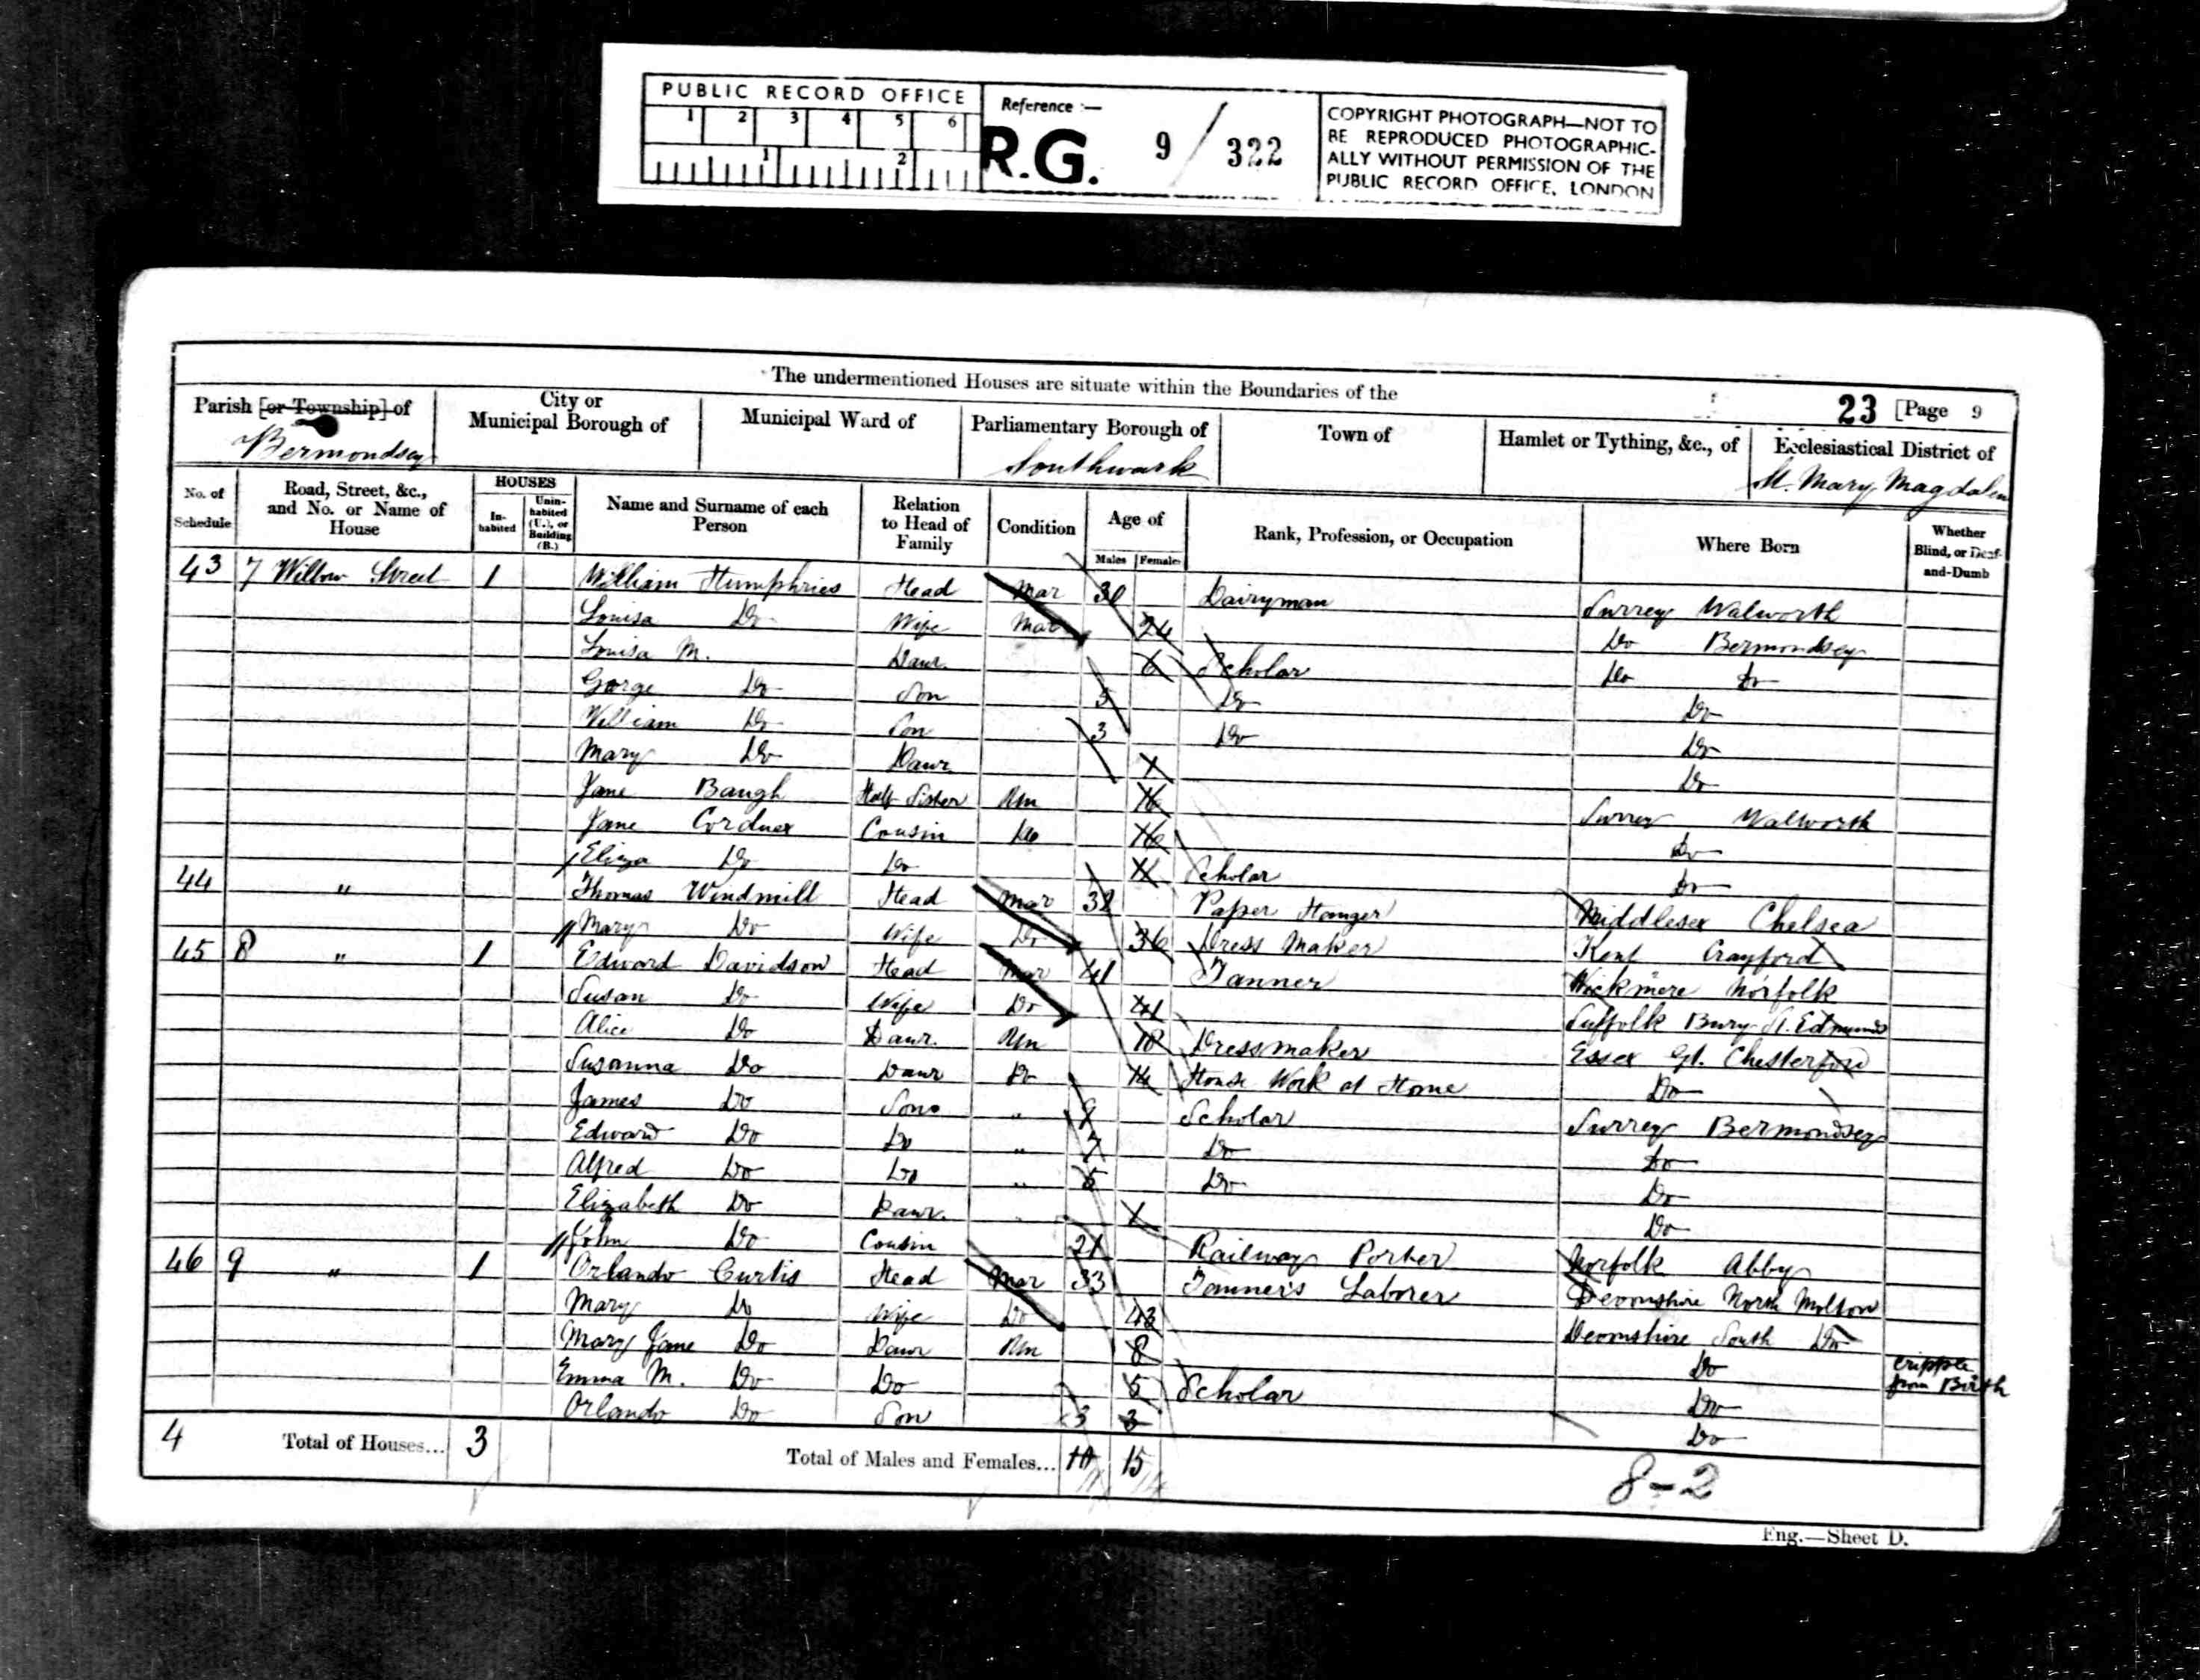 PUBLIC RECORD OFFICE
1 2 3 4 5 6
1 2
Reference :—
R.G. 9 / 322
COPYRIGHT PHOTOGRAPH—NOT TO
BE REPRODUCED PHOTOGRAPHIC-
ALLY WITHOUT PERMISSION OF THE
PUBLIC RECORD OFFICE, LONDON
The undermentioned Houses are situate within the Boundaries of the
23 [Page 9
Parish [or Township] of
Bermondsey
City or
Municipal Borough of
Municipal Ward of
Parliamentary Borough of
Southwark
Town of
Hamlet or Tything, &c., of
Ecclesiastical District of
St. Mary Magdalen
No. of
Schedule
Road, Street, &c.,
and No. or Name of
House
HOUSES
In-
habited
Unin-
habited
(U.), or
Building
(B.)
Name and Surname of each
Person
Relation
to Head of
Family
Condition
Age of
Males Females
Rank, Profession, or Occupation
Where Born
Whether
Blind, or Deaf-
and-Dumb
43 7 Willow Street 1 William Humphries Head Mar 30 Dairyman Surrey Walworth
Louisa Do Wife Mar 24 Do Bermondsey
Louisa M. Daur. 6 Scholar Do Do
George Do Son 5 Do Do
William Do Son 3 Do Do
Mary Do Daur 1 Do
Jane Baugh Half Sister Un 16 Surrey Walworth
Jane Cordner Cousin Do 16 Do
Eliza Do Do 11 Scholar Do
44 " Thomas Windmill Head Mar 32 Paper Hanger Middlesex Chelsea
Mary Do Wife Do 36 Dress Maker Kent Crayford
45 8 " 1 Edward Davidson Head Mar 41 Tanner Wickmere Norfolk
Susan Do Wife Do 41 Suffolk Bury St. Edmunds
Alice Do Daur. Un 18 Dressmaker Essex Gt. Chesterford
Susanna Do Daur Do 14 House Work at Home Do
James Do Son " 9 Scholar Surrey Bermondsey
Edward Do Do " 7 Do Do
Alfred Do Do " 5 Do Do
Elizabeth Do Daur. 1 Do
John Do Cousin 21 Railway Porter Norfolk Abby
46 9 " 1 Orlando Curtis Head Mar 33 Tanner's Laborer Devonshire North Molton
Mary Do Wife Do 43 Devonshire South Do
Mary Jane Do Daur Un 8 Do Cripple from Birth
Emma M. Do Do 5 Scholar Do
Orlando Do Son 3 3 Do
4 Total of Houses... 3 Total of Males and Females... 10 15
8-2
Eng.—Sheet D.